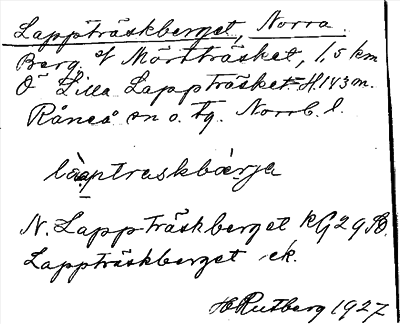 Lappträskberget, Norra.
Berg. vf Mörtträsket, 1,5 km
Ö Lilla Lappträsket. H. 143 m.
Råneå sn o. tg. Norrb. l.
làptraskbàrja
N. Lappträskberget RG
Lappträskberget ek.
H Rutberg 1927